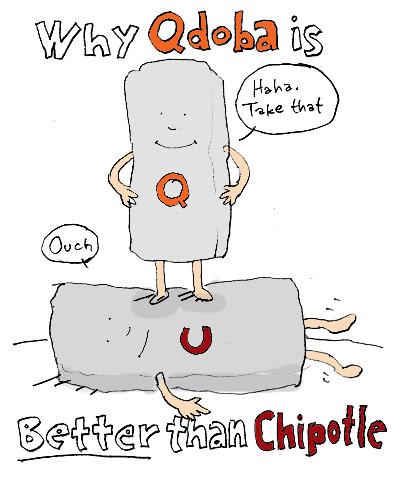 Why Qdoba is
Haha.
Take that
Q
Ouch
C
Better than Chipotle